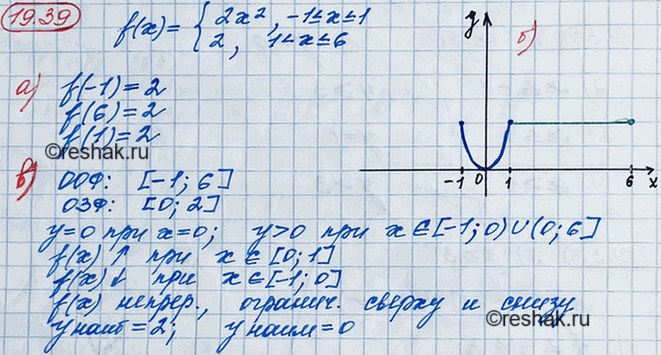 19.39
f(x) = { 2x², -1≤x≤1
2, 1<x≤6
а) f(-1) = 2
f(6) = 2
f(1) = 2
©reshak.ru
б)
y
-1 0 1 6 x
в) ООФ: [-1; 6]
ОЗФ: [0; 2]
y=0 при x=0; y>0 при x∈[-1; 0)∪(0; 6]
f(x) ↑ при x∈[0; 1]
f(x) ↓ при x∈[-1; 0]
f(x) непрер., огранич. сверху и снизу
y наиб = 2; y наим = 0
©reshak.ru